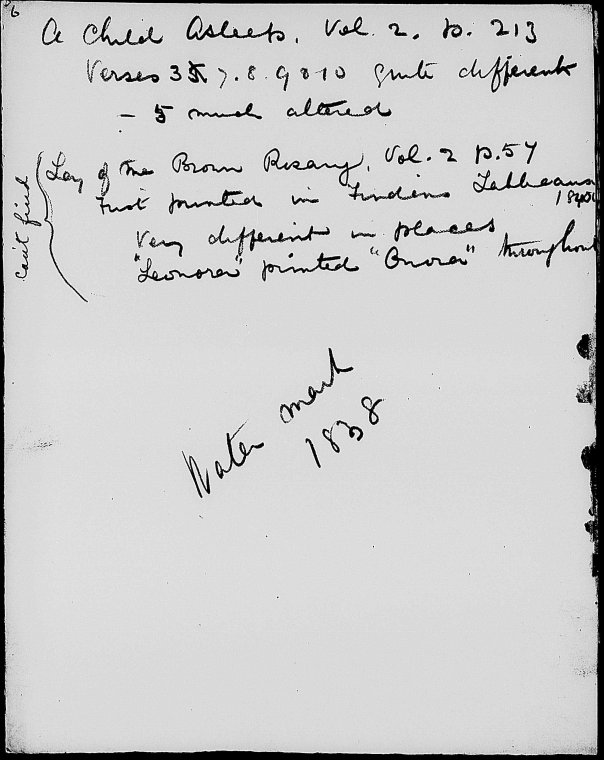 6
A Child Asleep. Vol. 2. p. 213
Verses 3 5 7. 8. 9 & 10 quite different
- 5 much altered
Lay of the Brown Rosary, Vol. 2 p. 57
can't find
First printed in Findens Tableaux
1840
Very different in places
"Leonora" printed "Onora" throughout
Water mark
1838